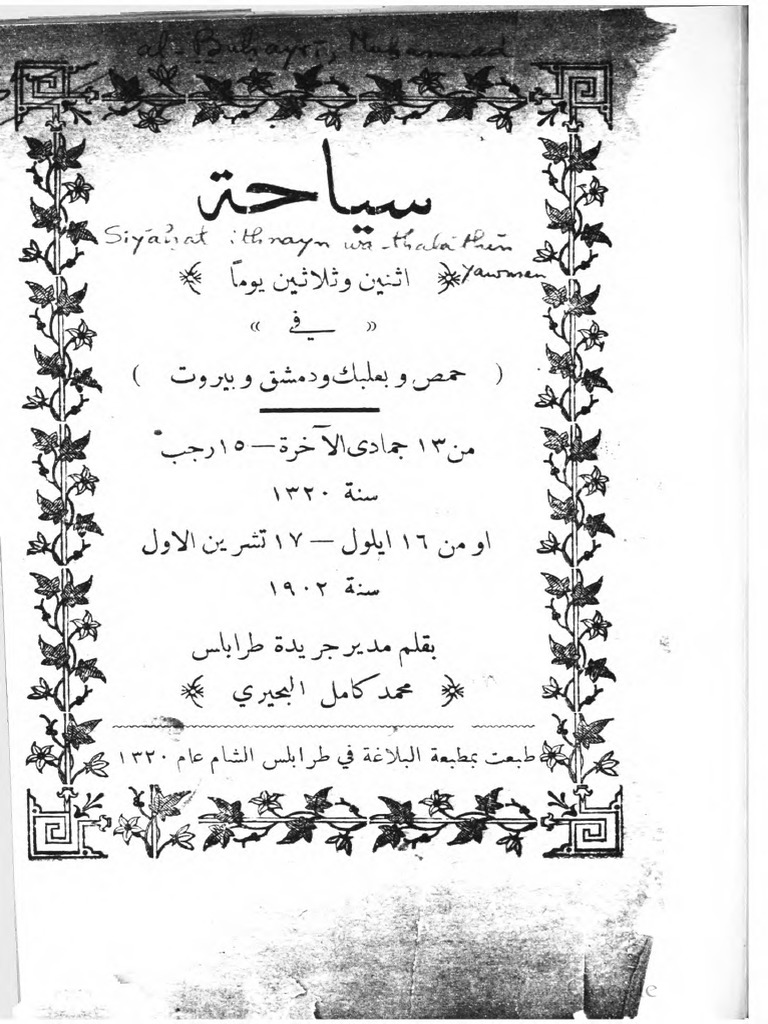 al-Buḥayrī, Muḥammad
سياحة
Siyāḥat ithnayn wa-thalāthīn
yawman
اثنين وثلاثين يوماً
« في »
( حمص وبعلبك ودمشق وبيروت )
من ١٣ جمادى الآخرة — ١٥ رجب
سنة ١٣٢٠
او من ١٦ ايلول — ١٧ تشرين الاول
سنة ١٩٠٢
بقلم مدير جريدة طرابلس
محمد كامل البحيري
طبعت بمطبعة البلاغة في طرابلس الشام عام ١٣٢٠
Google